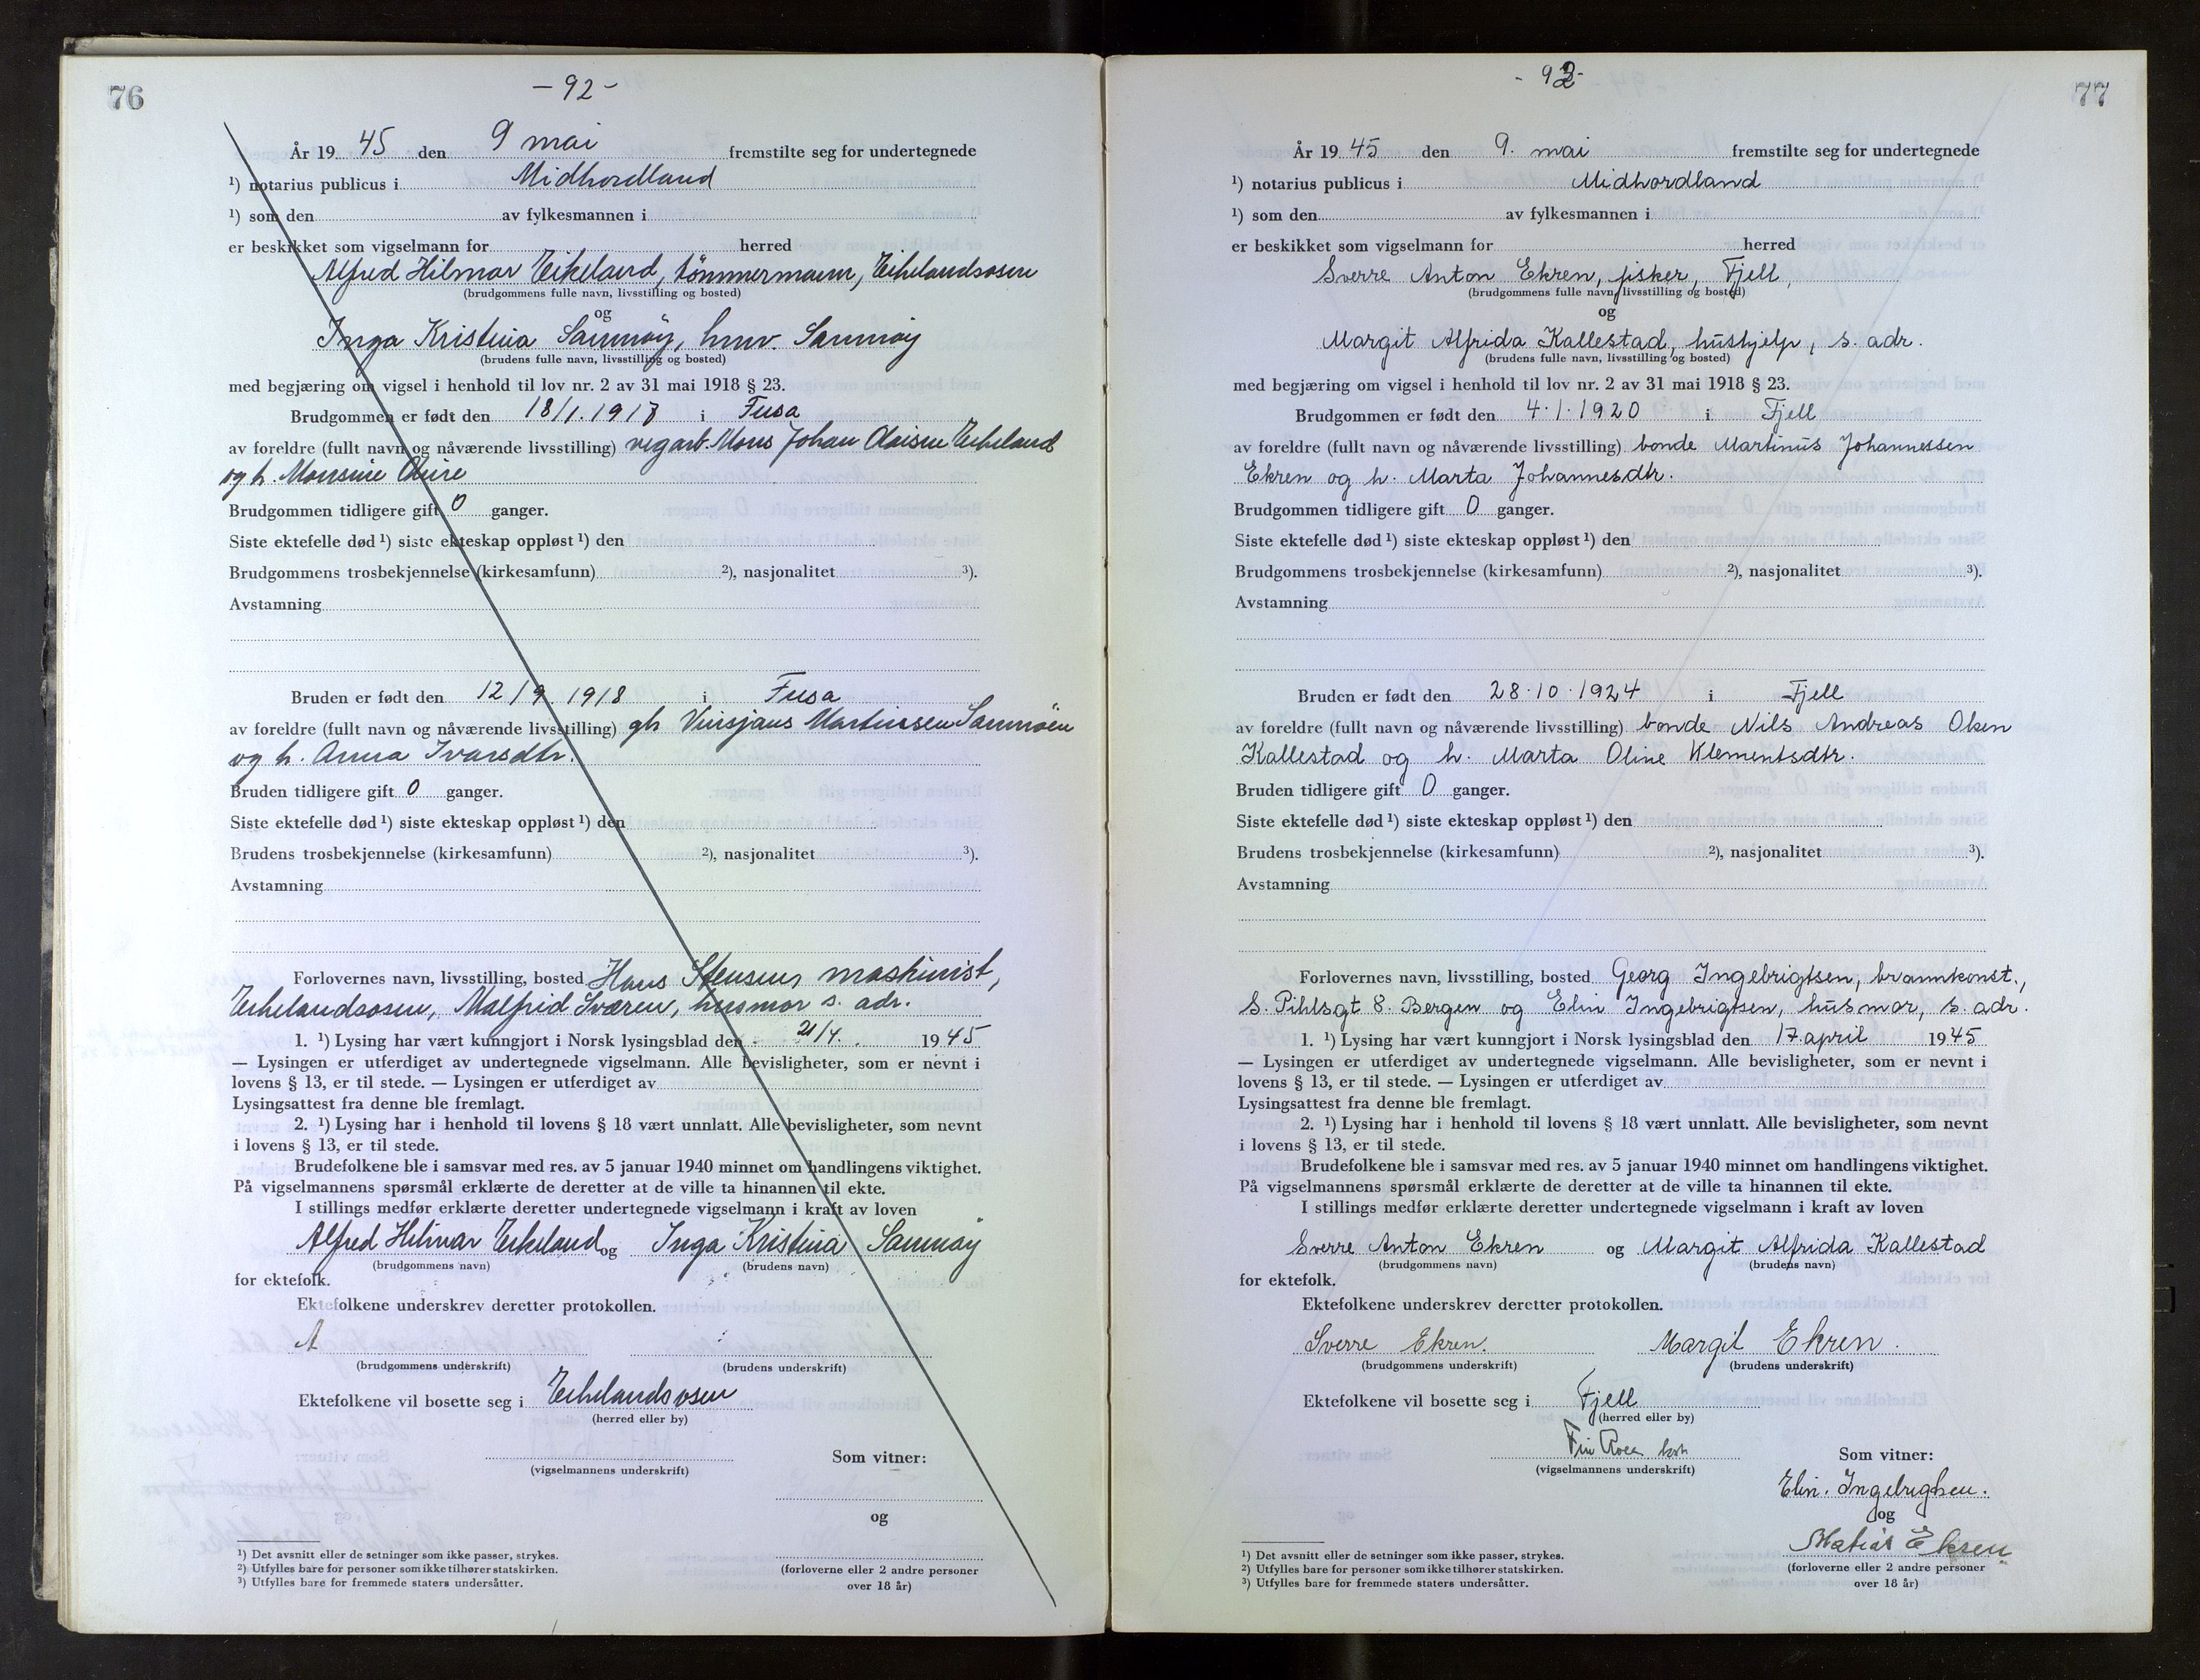 76
-92-
År 19 45 den 9 mai fremstilte seg for undertegnede
¹) notarius publicus i Midhordland
¹) som den av fylkesmannen i
er beskikket som vigselmann for herred
Alfred Hilmar Eikeland, tömmermann, Eikelandsosen
(brudgommens fulle navn, livsstilling og bosted)
og
Inga Kristina Samnøy, hmv. Samnøy
(brudens fulle navn, livsstilling og bosted)
med begjæring om vigsel i henhold til lov nr. 2 av 31 mai 1918 § 23.
Brudgommen er født den 18/1. 1917 i Fusa
av foreldre (fullt navn og nåværende livsstilling) vegarb. Mons Johan Olaisen Eikeland
og h. Monsine
Brudgommen tidligere gift 0 ganger.
Siste ektefelle død ¹) siste ekteskap oppløst ¹) den
Brudgommens trosbekjennelse (kirkesamfunn) ²), nasjonalitet ³).
Avstamning
Bruden er født den 12/9. 1918 i Fusa
av foreldre (fullt navn og nåværende livsstilling) gb Vinsjans Martinssen Samnöen
og h. Anna Ivarsdtr.
Bruden tidligere gift 0 ganger.
Siste ektefelle død ¹) siste ekteskap oppløst ¹) den
Brudens trosbekjennelse (kirkesamfunn) ²), nasjonalitet ³).
Avstamning
Forlovernes navn, livsstilling, bosted Hans Stensen, maskinist,
Eikelandsosen, Malfrid Sværen, husmor s. adr.
1. ¹) Lysing har vært kunngjort i Norsk lysingsblad den 21/4. 1945
— Lysingen er utferdiget av undertegnede vigselmann. Alle bevisligheter, som er nevnt i
lovens § 13, er til stede. — Lysingen er utferdiget av
Lysingsattest fra denne ble fremlagt.
2. ¹) Lysing har i henhold til lovens § 18 vært unnlatt. Alle bevisligheter, som nevnt
i lovens § 13, er til stede.
Brudefolkene ble i samsvar med res. av 5 januar 1940 minnet om handlingens viktighet.
På vigselmannens spørsmål erklærte de deretter at de ville ta hinannen til ekte.
I stillings medfør erklærte deretter undertegnede vigselmann i kraft av loven
Alfred Hilmar Eikeland og Inga Kristina Samnøy
(brudgommens navn) (brudens navn)
for ektefolk.
Ektefolkene underskrev deretter protokollen.
A
(brudgommens underskrift) (brudens underskrift)
Ektefolkene vil bosette seg i Eikelandsosen
(herred eller by)
Som vitner:
(vigselmannens underskrift)
og
(forloverne eller 2 andre personer
over 18 år)
¹) Det avsnitt eller de setninger som ikke passer, strykes.
²) Utfylles bare for personer som ikke tilhører statskirken.
³) Utfylles bare for fremmede staters undersåtter.
77
- 92-
År 19 45 den 9. mai fremstilte seg for undertegnede
¹) notarius publicus i Midhordland
¹) som den av fylkesmannen i
er beskikket som vigselmann for herred
Sverre Anton Ekren, fisker, Fjell,
(brudgommens fulle navn, livsstilling og bosted)
og
Margit Alfrida Kallestad, hushjelp, s. adr.
(brudens fulle navn, livsstilling og bosted)
med begjæring om vigsel i henhold til lov nr. 2 av 31 mai 1918 § 23.
Brudgommen er født den 4.1.1920 i Fjell
av foreldre (fullt navn og nåværende livsstilling) bonde Martinus Johannessen
Ekren og h. Marta Johannesdtr.
Brudgommen tidligere gift 0 ganger.
Siste ektefelle død ¹) siste ekteskap oppløst ¹) den
Brudgommens trosbekjennelse (kirkesamfunn) ²), nasjonalitet ³).
Avstamning
Bruden er født den 28.10.1924 i Fjell
av foreldre (fullt navn og nåværende livsstilling) bonde Nils Andreas Olsen
Kallestad og h. Marta Oline Klementsdtr.
Bruden tidligere gift 0 ganger.
Siste ektefelle død ¹) siste ekteskap oppløst ¹) den
Brudens trosbekjennelse (kirkesamfunn) ²), nasjonalitet ³).
Avstamning
Forlovernes navn, livsstilling, bosted Georg Ingebrigtsen, brannkonst.,
S. Pihlsgt 8. Bergen og Elin Ingebrigtsen, husmor, s. adr.
1. ¹) Lysing har vært kunngjort i Norsk lysingsblad den 17. april 1945
— Lysingen er utferdiget av undertegnede vigselmann. Alle bevisligheter, som er nevnt i
lovens § 13, er til stede. — Lysingen er utferdiget av
Lysingsattest fra denne ble fremlagt.
2. ¹) Lysing har i henhold til lovens § 18 vært unnlatt. Alle bevisligheter, som nevnt
i lovens § 13, er til stede.
Brudefolkene ble i samsvar med res. av 5 januar 1940 minnet om handlingens viktighet.
På vigselmannens spørsmål erklærte de deretter at de ville ta hinannen til ekte.
I stillings medfør erklærte deretter undertegnede vigselmann i kraft av loven
Sverre Anton Ekren og Margit Alfrida Kallestad
(brudgommens navn) (brudens navn)
for ektefolk.
Ektefolkene underskrev deretter protokollen.
Sverre Ekren. Margit Ekren.
(brudgommens underskrift) (brudens underskrift)
Ektefolkene vil bosette seg i Fjell
(herred eller by)
Som vitner:
(vigselmannens underskrift)
Elin. Ingebrigtsen.
og
Matias Ekren
(forloverne eller 2 andre personer
over 18 år)
¹) Det avsnitt eller de setninger som ikke passer, strykes.
²) Utfylles bare for personer som ikke tilhører statskirken.
³) Utfylles bare for fremmede staters undersåtter.